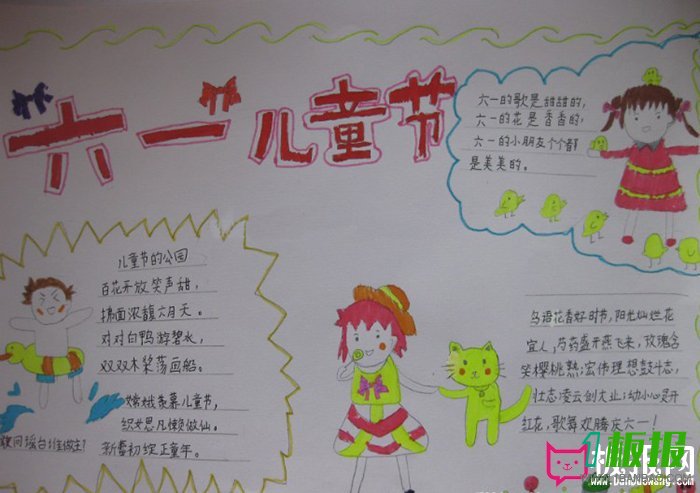 六一儿童节
六一的歌是甜甜的,
六一的花是香香的,
六一的小朋友个个都
是美美的。
儿童节的公园
百花开放笑声甜,
拂面浓馥六月天。
对对白鸭游碧水,
双双木桨荡画船。
嫦娥羡慕儿童节,
织女思凡懒做仙。
新蕾初绽正童年。
鸟语花香好时节,阳光灿烂花
宜人,芍药盛开燕飞来,玫瑰含
笑樱桃熟;宏伟理想鼓斗志,
壮志凌云创大业;幼小心灵开
红花,歌舞欢腾庆六一!
板报网
www.banbaowang.com